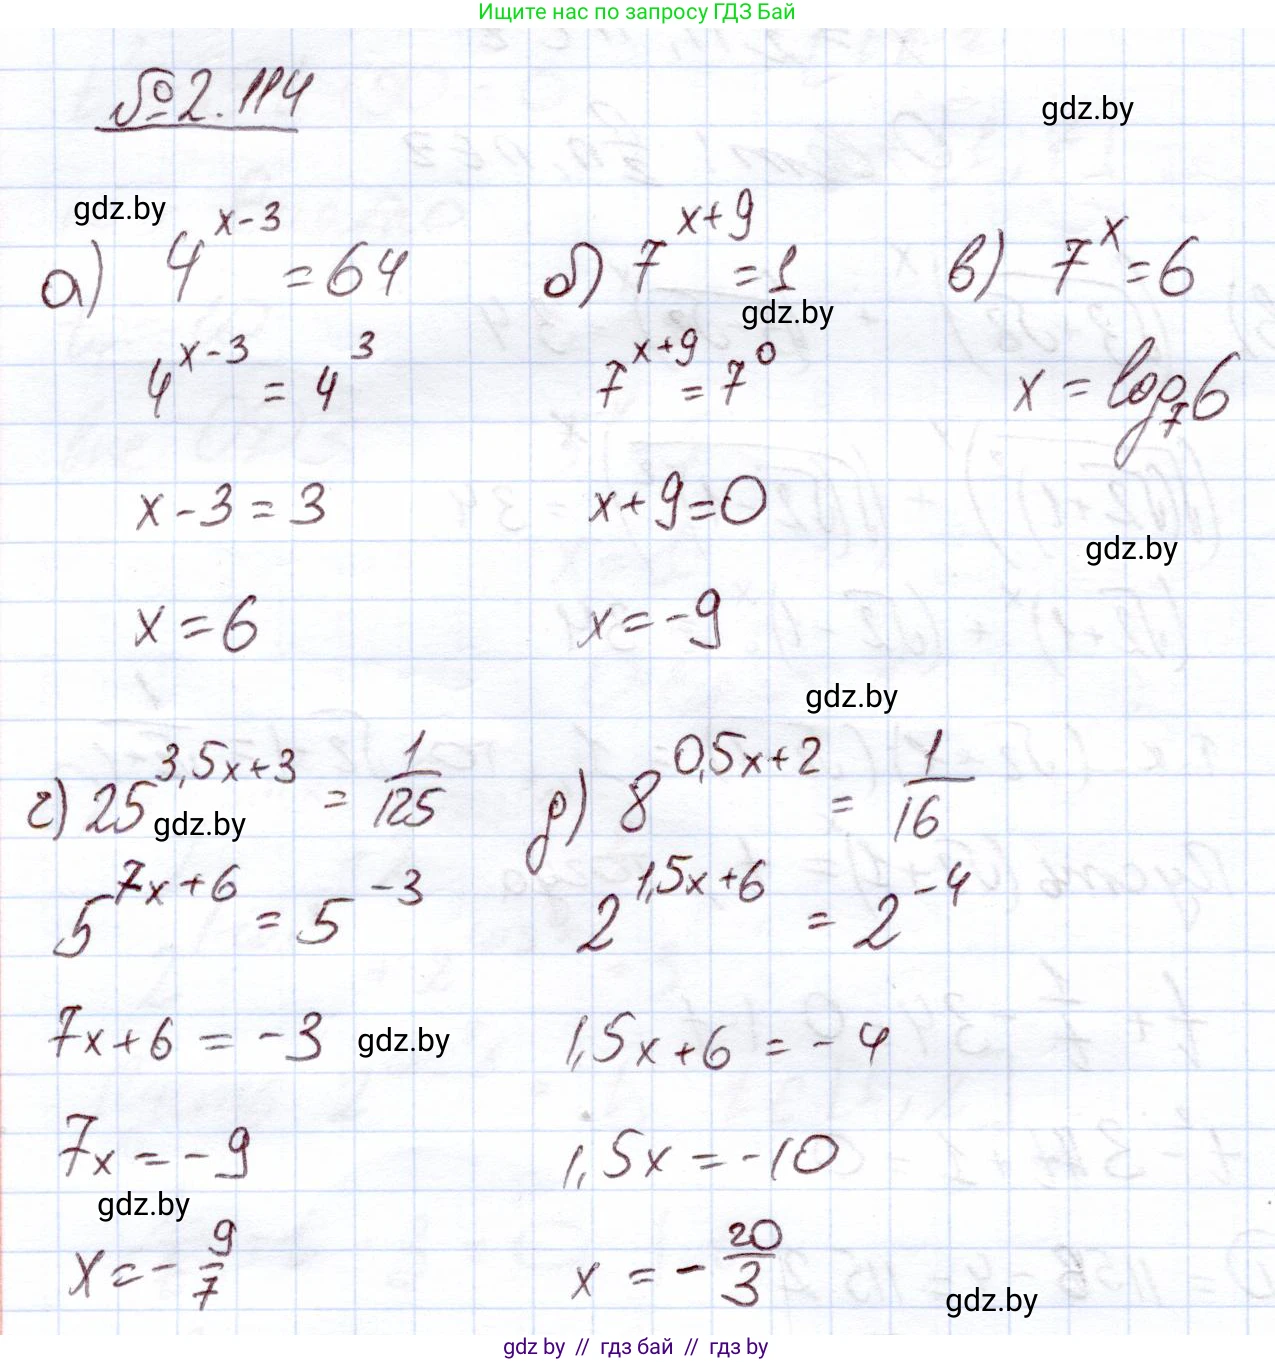 Ищите нас по запросу ГДЗ Бай
№2.114
gdz.by
gdz.by
а) 4^{x-3} = 64
4^{x-3} = 4^3
x-3 = 3
x = 6
б) 7^{x+9} = 1
gdz.by
7^{x+9} = 7^0
x+9 = 0
x = -9
в) 7^x = 6
x = log_7 6
gdz.by
gdz.by
г) 25^{3,5x+3} = 1/125
gdz.by
5^{7x+6} = 5^{-3}
7x+6 = -3
gdz.by
7x = -9
gdz.by
x = -9/7
д) 8^{0,5x+2} = 1/16
2^{1,5x+6} = 2^{-4}
1,5x+6 = -4
1,5x = -10
x = -20/3
gdz.by
gdz by // гдз бай // гдз by